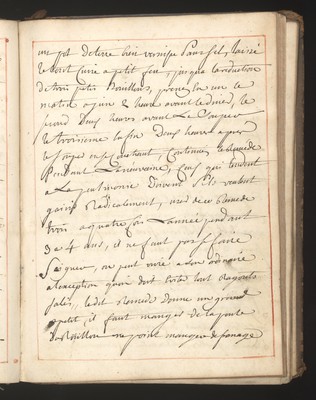 un pot de terre bien vernisé sans sel, laissé
le tout cuire a petit feu, jusqua la reduction
de trois petits Bouillons, prenés en un le
matin a jeun 2 heures avant le diné, le
second deux heures avant Le Souper
le troisieme la fin deux heures apres
le soupé en se couchant, Continués le remede
Pendant L'neuvaine, Ceux qui tendent
a La pulmonie doivent s'ils veulent
guérir Radicalement, user de ce Remede
trois a quatre fois L'année pendant
3 a 4 ans, il ne faut pas se faire
Saigner, on peut vivre a son ordinaire
a l'exception quon doit éviter tout Ragouts
salés, ledit Remede donne un grand
apetit, il faut manger de la soupe
du Bouillon ne point manger de fromage